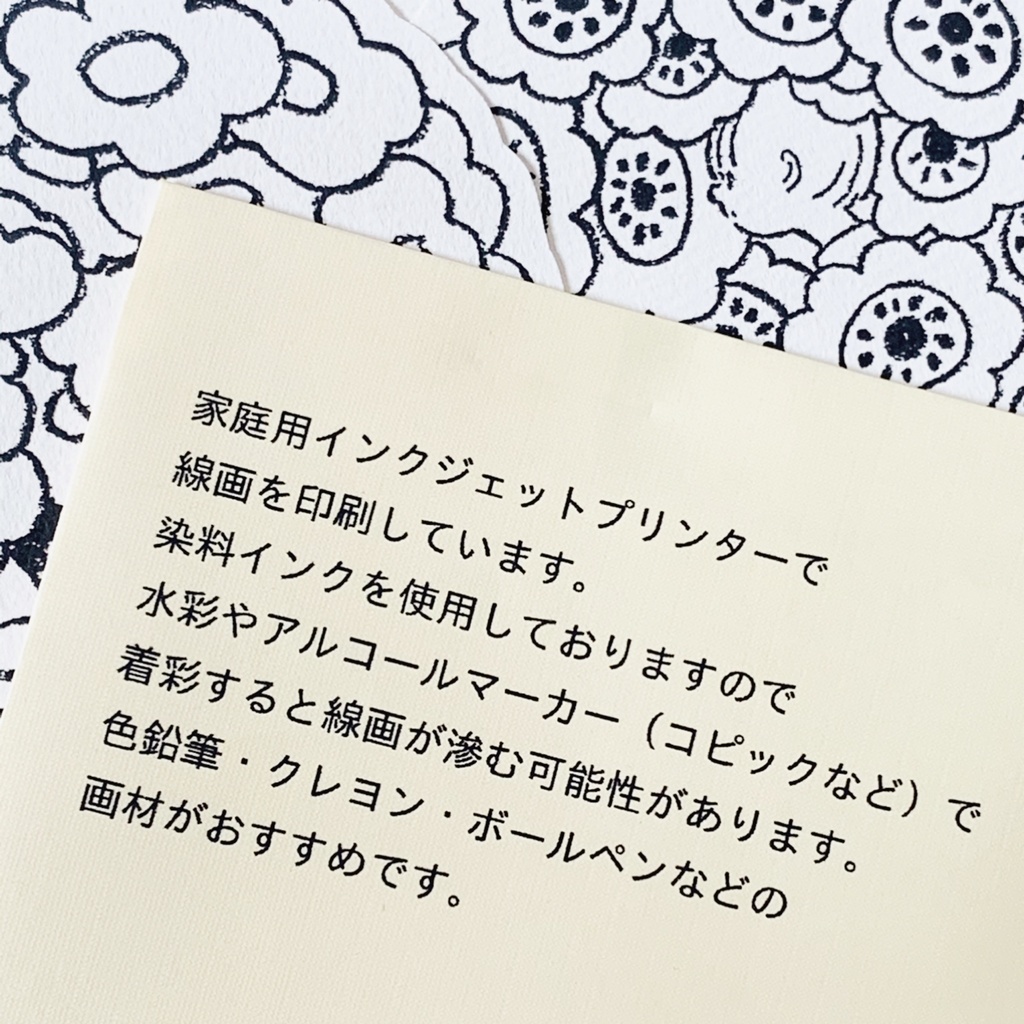 家庭用インクジェットプリンターで
線画を印刷しています。
染料インクを使用しておりますので
水彩やアルコールマーカー（コピックなど）で
着彩すると線画が滲む可能性があります。
色鉛筆・クレヨン・ボールペンなどの
画材がおすすめです。